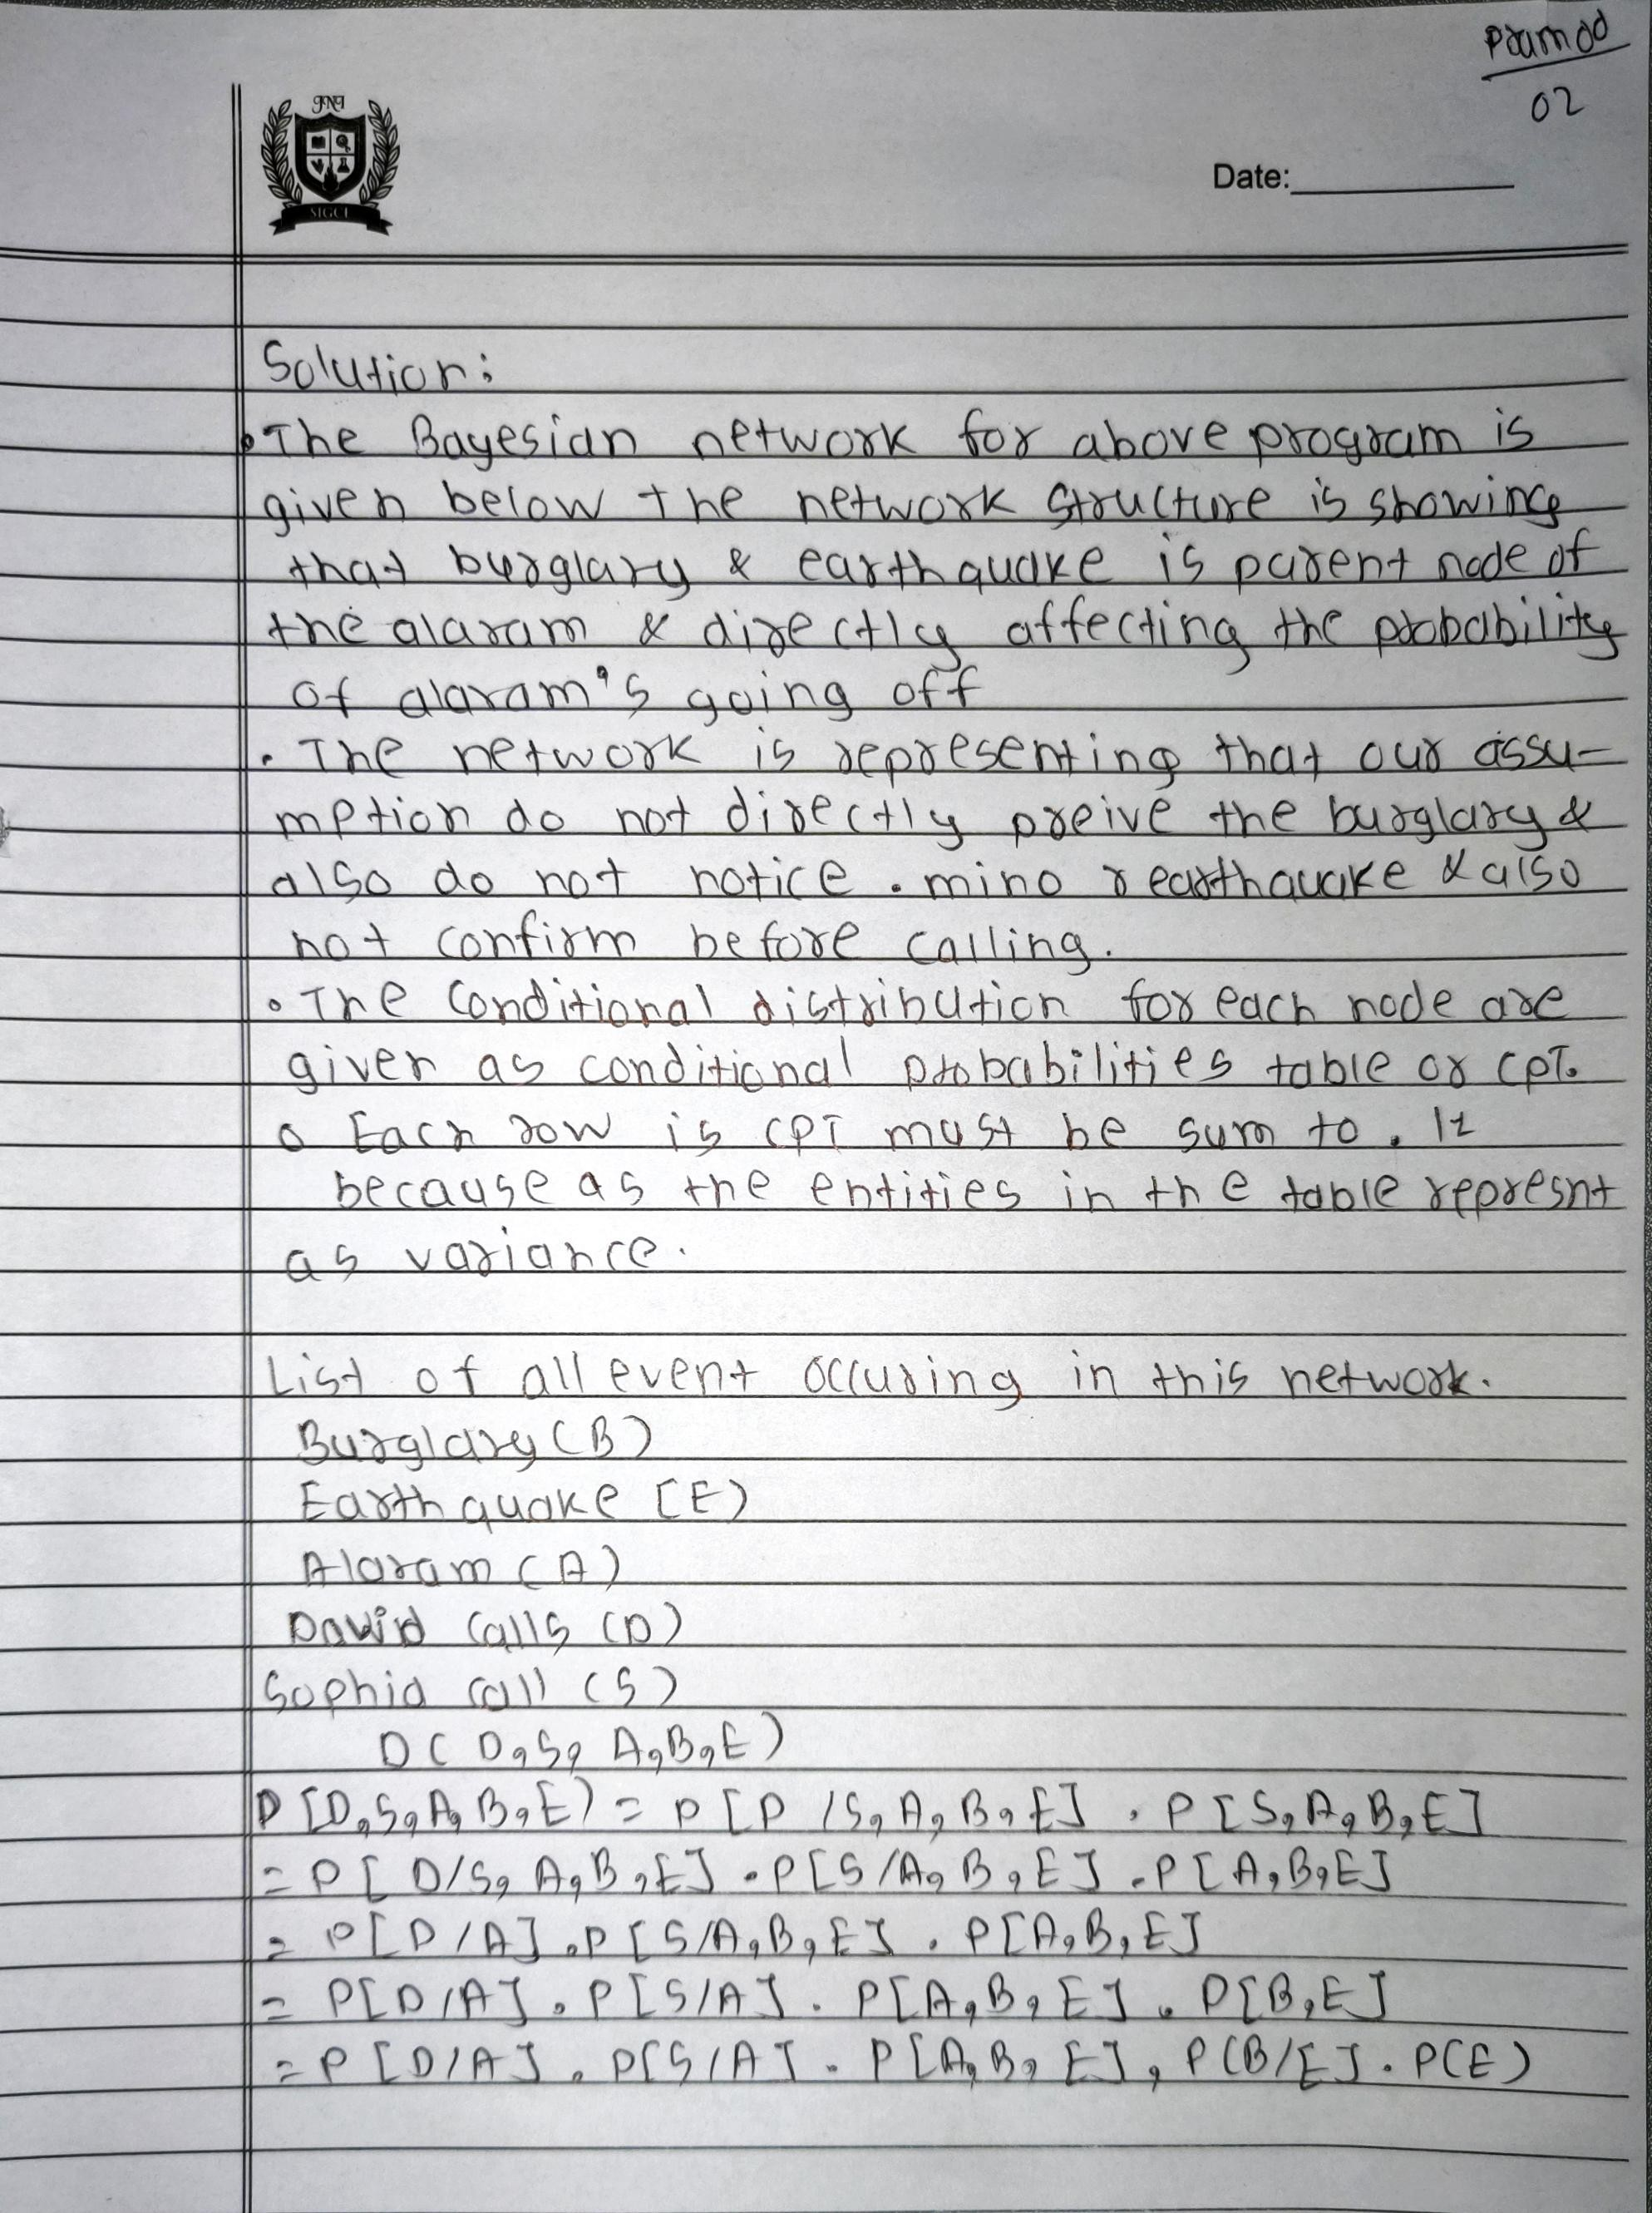 Pramod
02
JNJ
SIGCE
Date:
Solution:
• The Bayesian network for above program is
given below the network structure is showing
that burglary & earthquake is parent node of
the alaram & directly affecting the probability
of alaram's going off
• The network is representing that our assu-
mption do not directly preive the burglary &
also do not notice . mino r earthquake & also
not confirm before calling.
• The conditional distribution for each node are
given as conditional probabilities table or CPT.
o Each row is CPT must be sum to . 1
because as the entities in the table represnt
as variance.
List of all event occuring in this network.
Burglary (B)
Earthquake [E)
Alaram (A)
David calls (D)
Sophia call (S)
D ( D, S, A, B, E )
P [D, S, A, B, E) = P [P / S, A, B, E] . P [S, A, B, E]
= P [ D/S, A, B, E] . P [S /A, B, E] . P [A, B, E]
= P [D / A] . P [S/A, B, E] . P [A, B, E]
= P[D/A] . P[S/A] . P[A, B, E] . P[B, E]
= P [D/A] . P[S/A] . P[A, B, E] , P(B/E] . P(E)